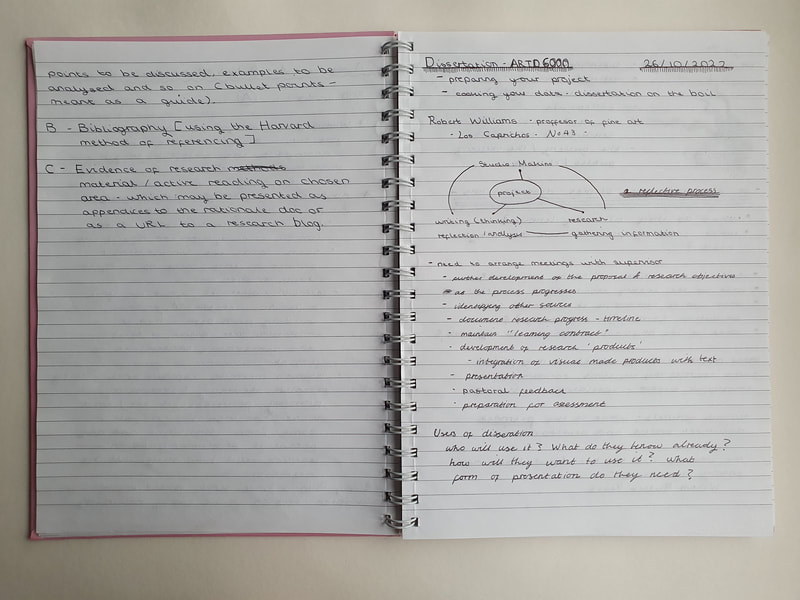 points to be discussed, examples to be
analysed and so on (bullet points -
meant as a guide).
B - Bibliography [using the Harvard
method of referencing]
C - Evidence of research methods
material / active reading on chosen
area - which may be presented as
appendices to the rationale doc or
as a URL to a research blog.
Dissertation - ARTD6000 26/10/2022
- preparing your project
- cooking your data / dissertation on the boil
Robert Williams - proffesor of fine art
- Los Caprichos - No43 -
Studio Making
project
a reflective process
writing (thinking) research
reflection/analysis gathering information
- need to arrange meetings with supervisor
- further development of the proposal & research objectives
as the process progresses
- identifying other sources
- document research progress - timeline
- maintain "learning contract"
- development of research 'products'
- integration of visual made products with text
- presentation
- pastoral feedback
- preparation for assessment
Users of disseration
who will use it? What do they know already?
how will they want to use it? what
form of presentation do they need?